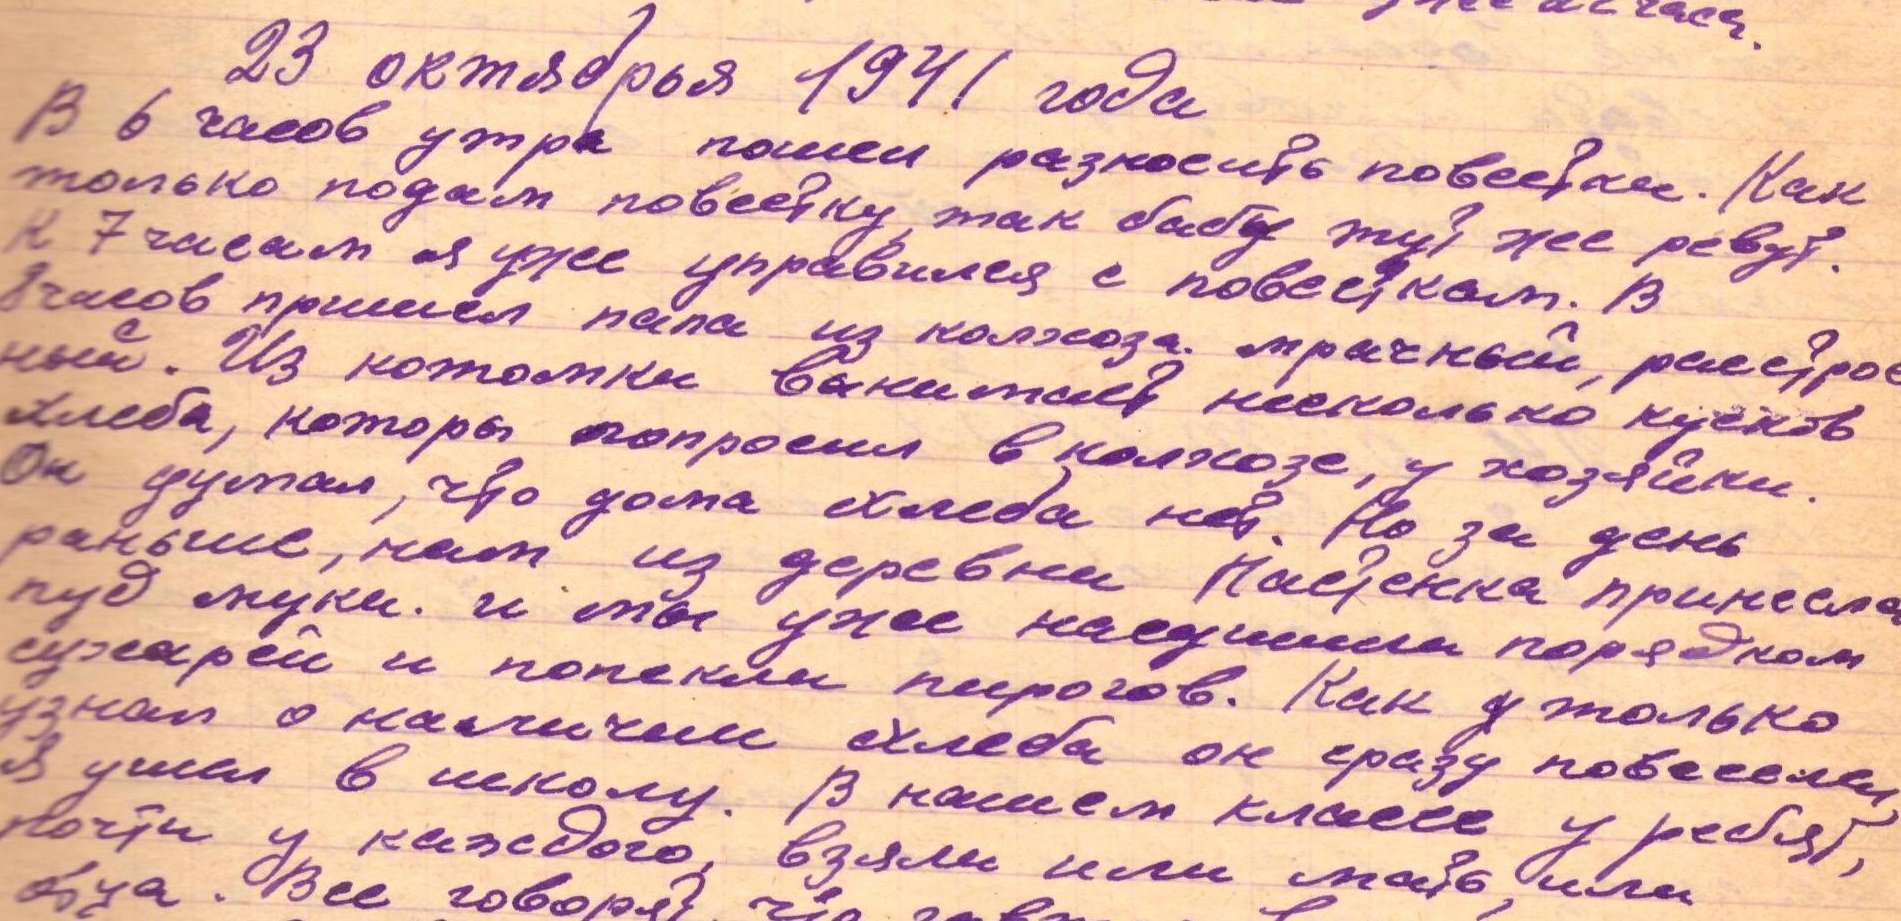 23 октябрья 1941 года
В 6 часов утра пошел разносить повестки. Как
только подам повестку, так бабы тут же ревут.
К 7 часам я уже управился с повесткам. В
8 часов пришел папа из колхоза. мрачный, расстрое
ный. Из котомки вынимает несколько кусков
хлеба, которы попросил в колхозе, у хозяйки.
Он думал, что дома хлеба нет. Но за день
раньше, нам из деревни Настенка принесла
пуд муки. и мы уже насушили порядком
сухарей и попекли пирогов. Как только
узнал о наличии хлеба он сразу повеселел,
Я ушел в школу. В нашем классе у ребят,
почти у каждого, взяли или мать, или
отца. Все говорят, что